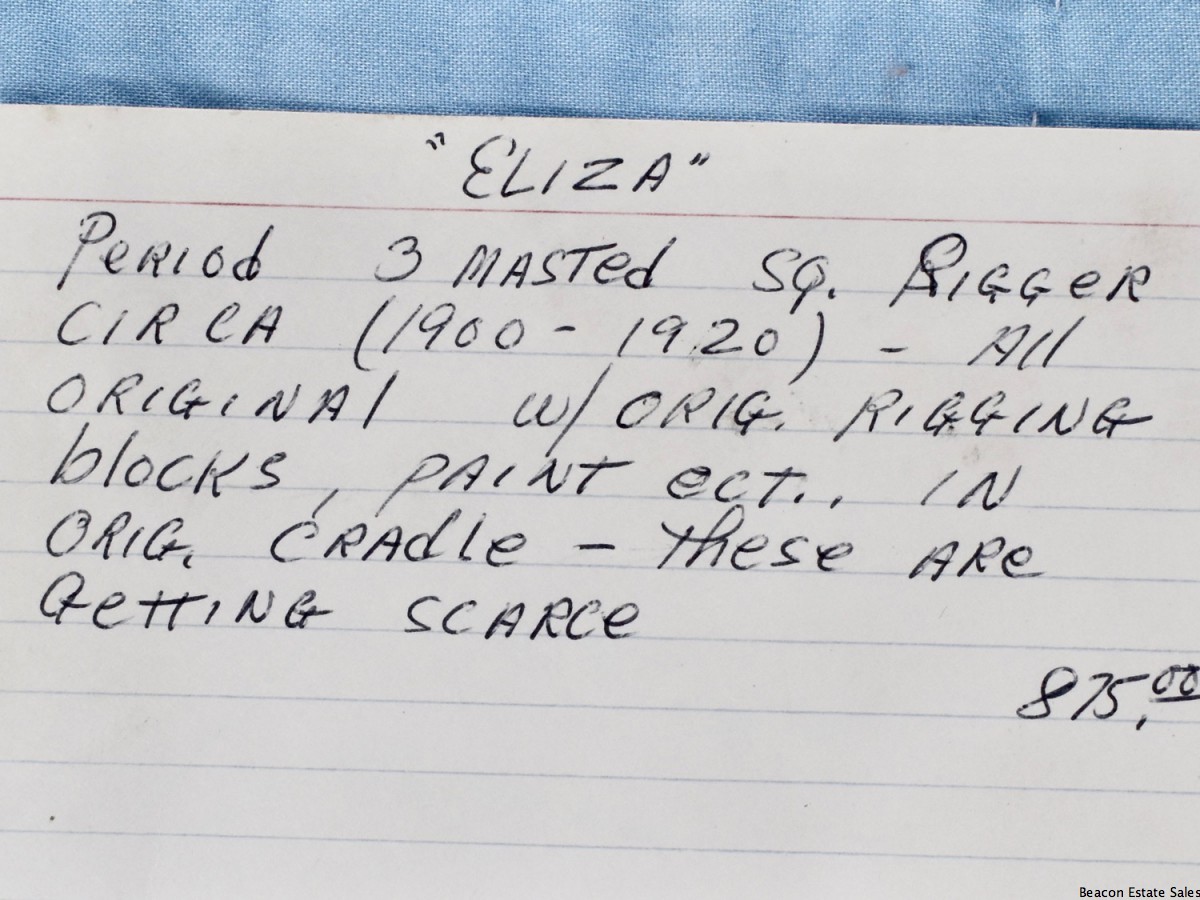 "ELIZA"
Period 3 MASTed SQ. RIGGeR
CIRCA (1900 - 1920) - All
ORIGINAl w/ ORIG. RIGGING
blocks, PAINT ect.. IN
ORIG. CRAdle - These ARe
GeTTING SCARCe
875.00
Beacon Estate Sales